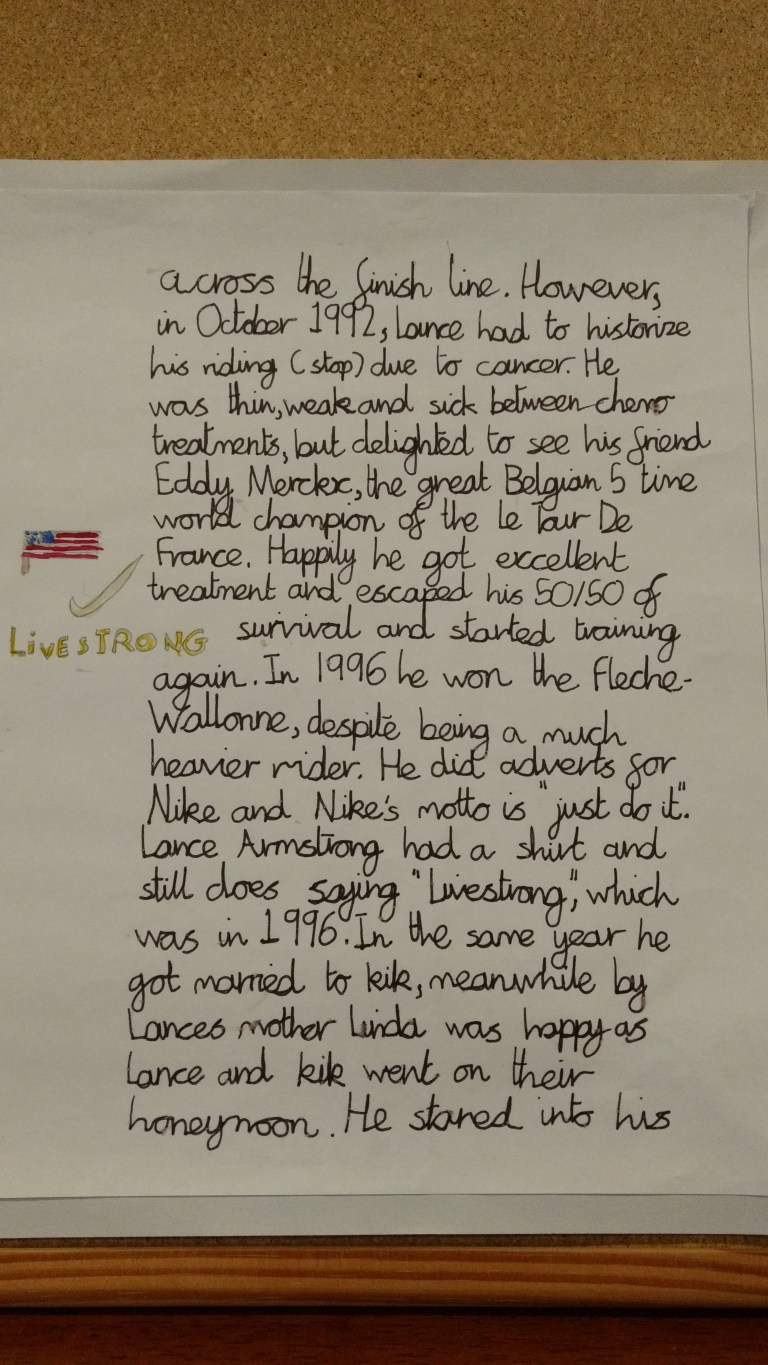 across the finish line. However,
in October 1992, Lance had to historize
his riding (stop) due to cancer. He
was thin, weak and sick between chemo
treatments, but delighted to see his friend
Eddy Merckx, the great Belgian 5 time
world champion of the Le Tour De
France. Happily he got excellent
treatment and escaped his 50/50 of
LiVESTRONG
survival and started training
again. In 1996 he won the Fleche-
Wallonne, despite being a much
heavier rider. He did adverts for
Nike and Nike's motto is "just do it".
Lance Armstrong had a shirt and
still does saying "Livestrong", which
was in 1996. In the same year he
got married to kik, meanwhile by
Lances mother Linda was happy as
Lance and kik went on their
honeymoon. He stared into his